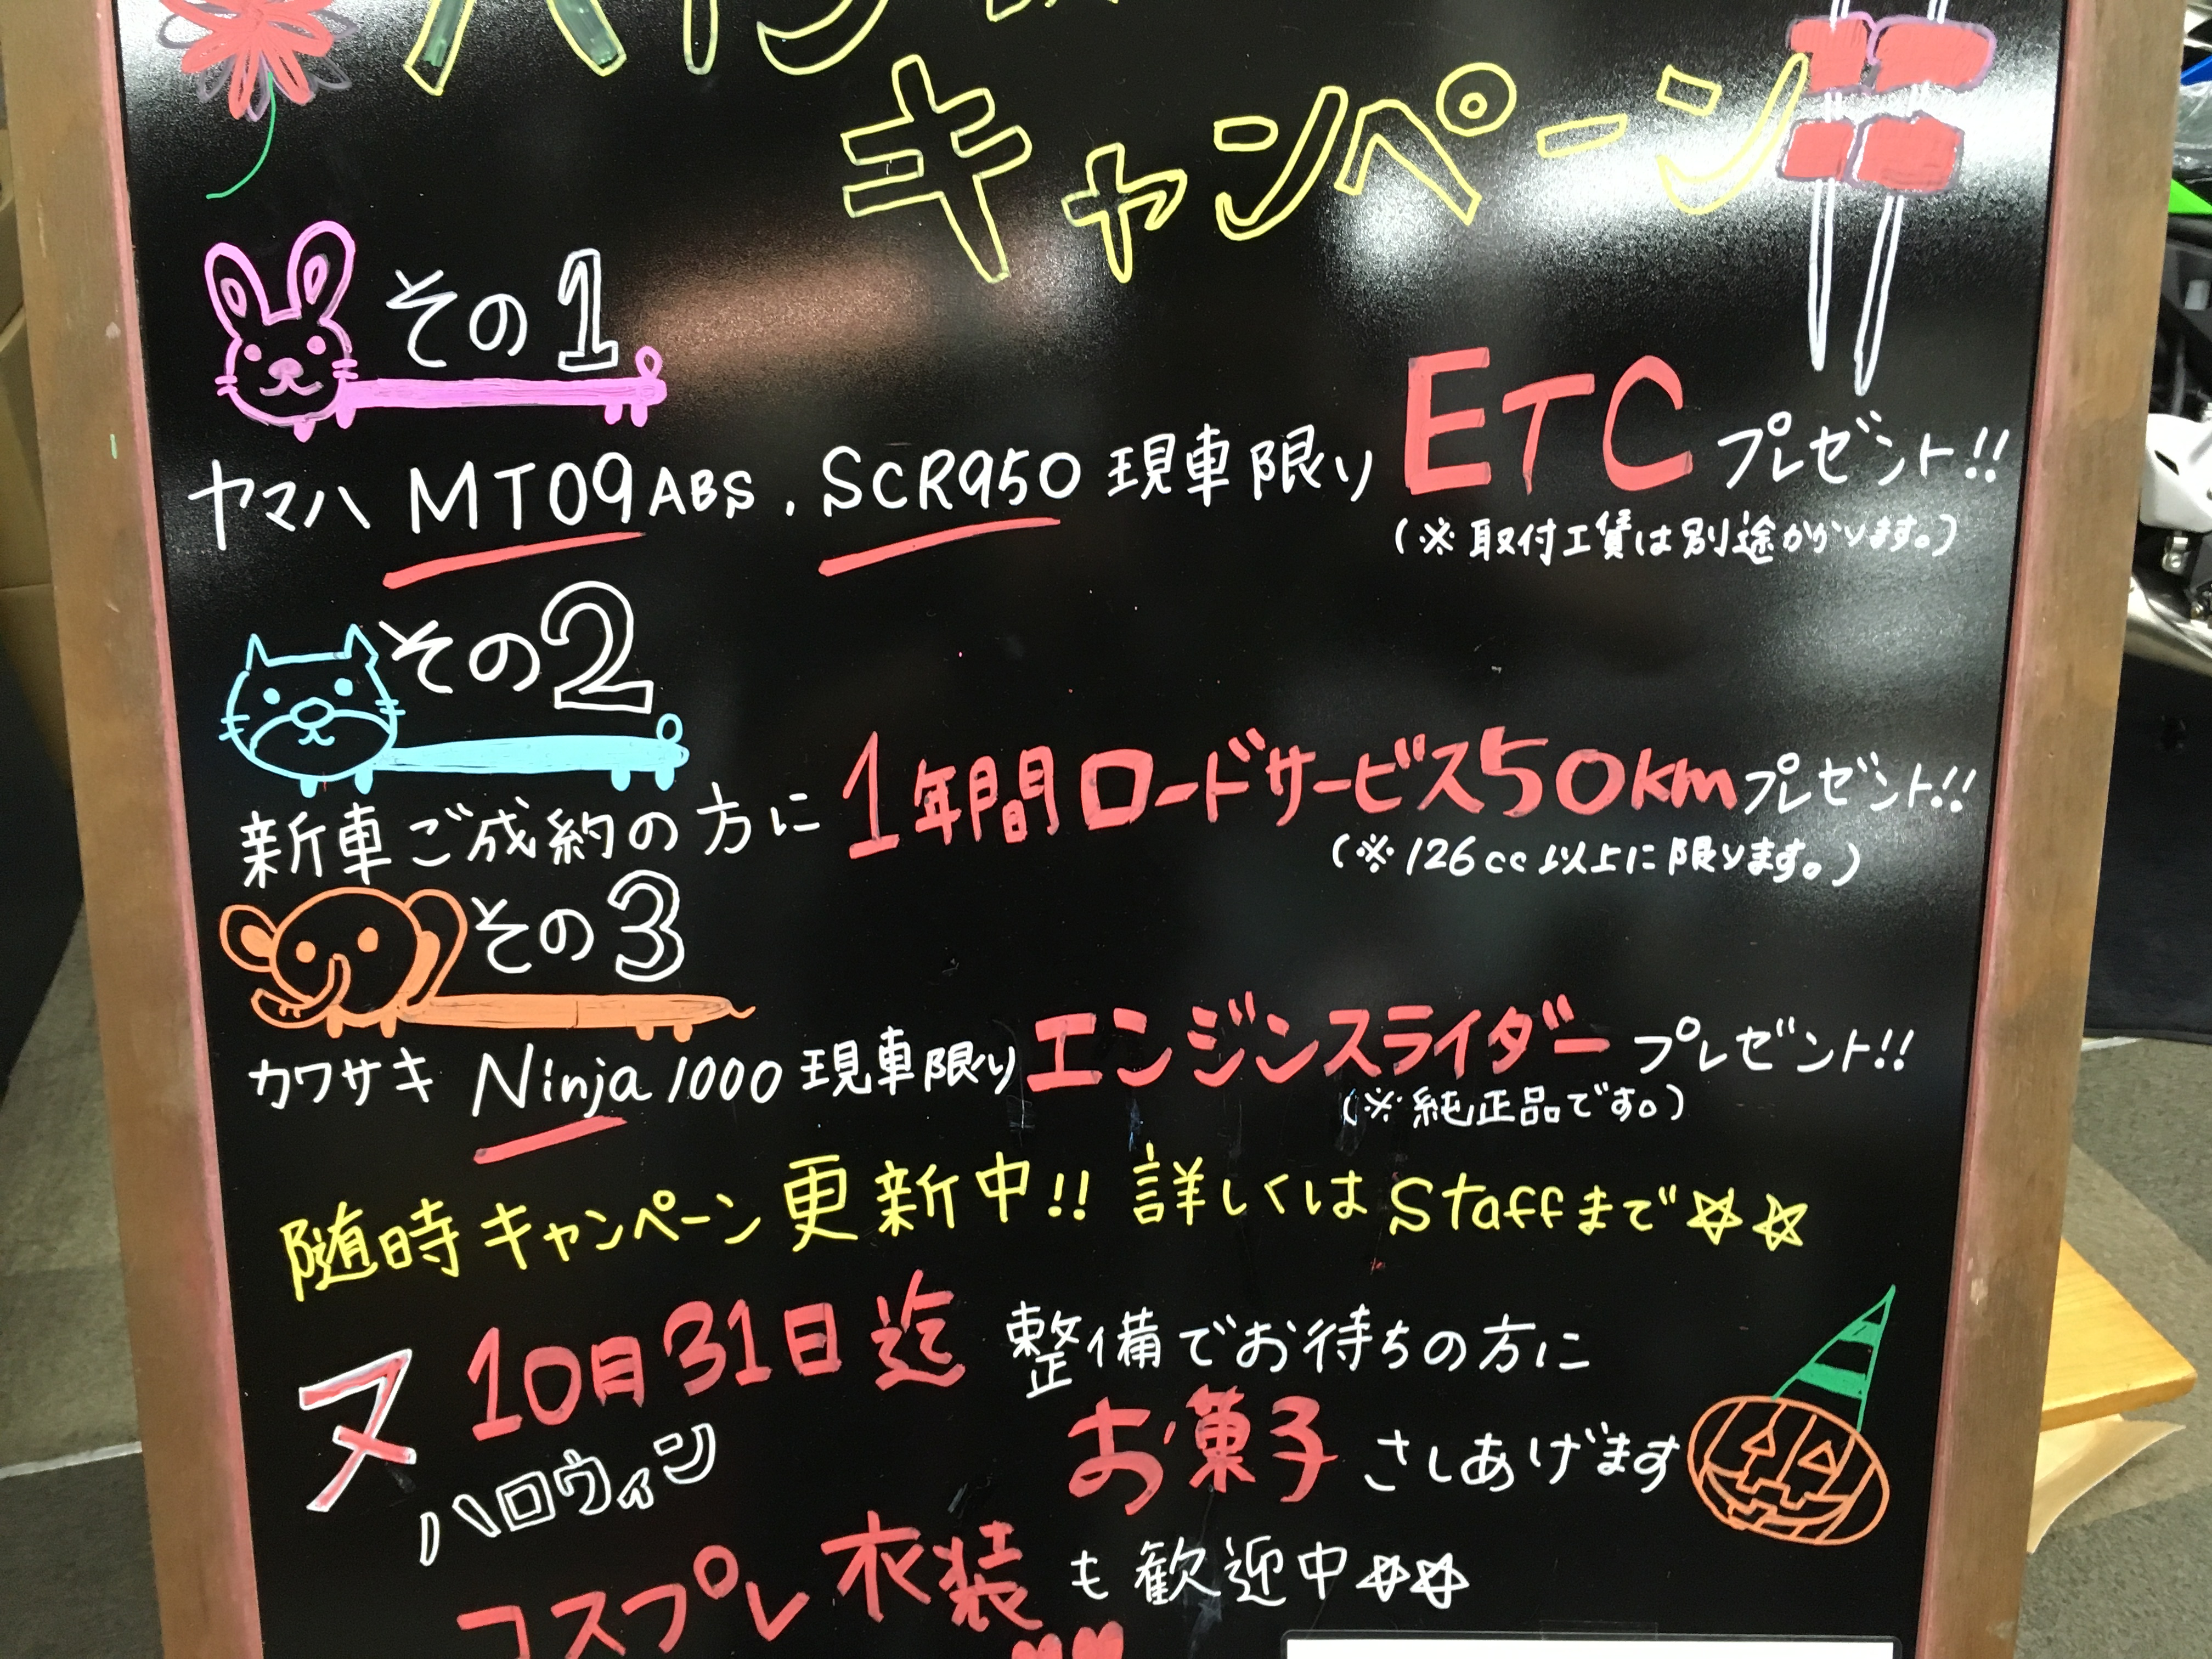 キャンペーン
その1
ヤマハ MT09ABS.SCR950 現車限り ETCプレゼント!!
(※取付工賃は別途かかります。)
その2
新車ご成約の方に 1年間ロードサービス50kmプレゼント!!
(※126cc以上に限ります。)
その3
カワサキ Ninja1000現車限り エンジンスライダープレゼント!!
(※純正品です。)
随時キャンペーン更新中!! 詳しくはStaffまで☆☆
ヌ 10月31日迄 整備でお待ちの方に
ハロウィン お菓子 さしあげます
コスプレ衣装も歓迎中☆☆